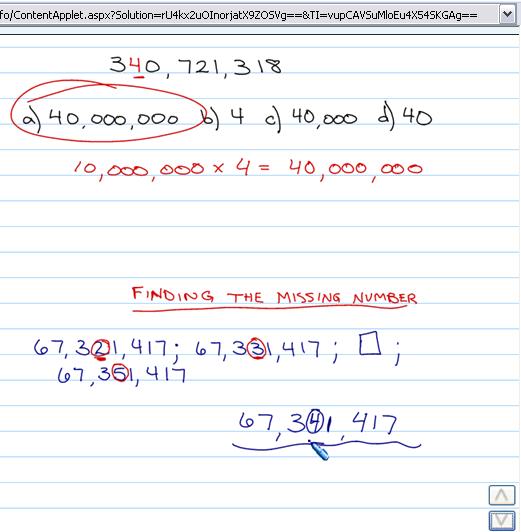 fo/ContentApplet.aspx?Solution=rU4kx2uOInorjatX9ZOSVg==&TI=vupCAVSuMloEu4X54SKGAg==
340,721,318
a) 40,000,000 b) 4 c) 40,000 d) 40
10,000,000 x 4 = 40,000,000
FINDING THE MISSING NUMBER
67,321,417; 67,331,417; □;
67,351,417
67,341,417